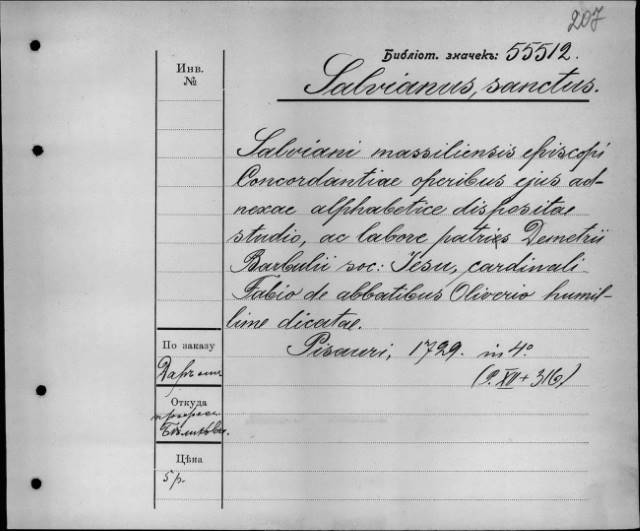 207
Библіот. значекъ: 55512.
Инв.
№
Salvianus, sanctus.
Salviani massiliensis episcopi
Concordantiae operibus ejus ad-
nexae alphabetice dispositae
studio, ac labore patris Demetrii
Barbulii soc: Iesu, cardinali
Fabio de abbatibus Oliverio humil-
lime dicatae.
Pisauri, 1729. in 4°.
(P. XII + 316)
По заказу
Откуда
Цѣна
5 р.